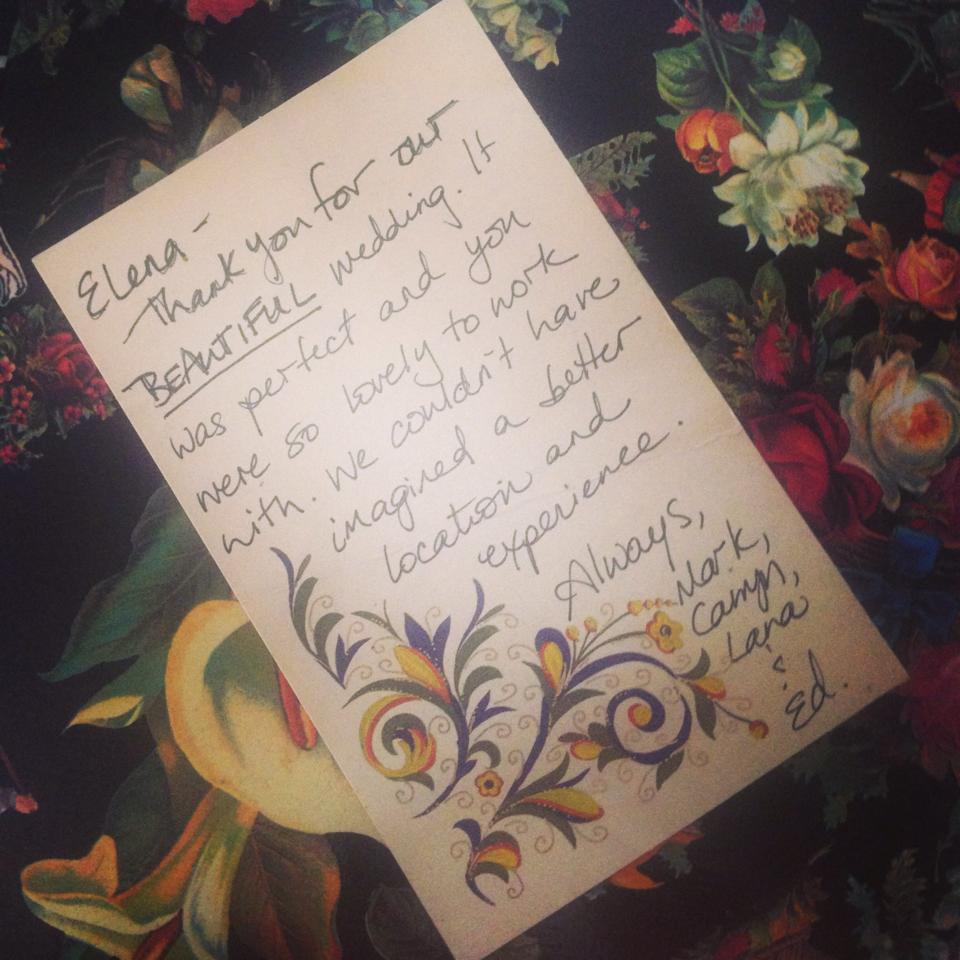 Elena -
Thank you for our
BEAUTIFUL wedding. It
was perfect and you
were so lovely to work
with. We couldn't have
imagined a better
location and
experience.
Always,
Mark,
Camyn,
Lana
&
Ed.